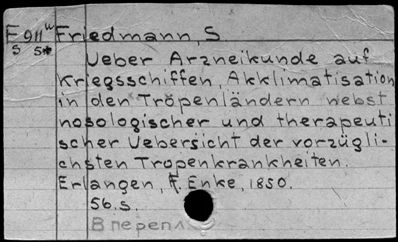 F 911 w Friedmann, S
s s*
Ueber Arzneikunde auf
Kriegsschiffen, Akklimatisation
in den Tropenländern nebst
nosologischer und therapeuti
scher Uebersicht der vorzügli-
chsten Tropenkrankheiten.
Erlangen, F. Enke, 1850.
56. s.
В перепл.